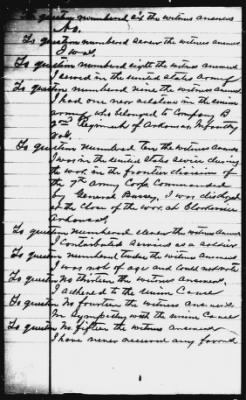 To question numbered six the witness answered
No.
To question numbered seven the witness answered
I was,
To question numbered eight the witness answered
I served in the united states army
To question numbered nine the witness answered
I had one near relative in the union
army who belonged to Company B
2nd Regiment of Arkansas Infantry
Vols.
To question numbered ten the witness answered
I was in the united states service during
the war in the frontier division of
the 7th army Corps Commanded
by General Bussey, I was discharged
at the close of the war at
Arkansas,
To question numbered eleven the witness answered
I contributed services as a soldier
To question numbered twelve the witness answered
I was not of age and could not vote
To question No thirteen the witness answered,
I adhered to the union Cause
To question No fourteen the witness answered
In sympathy with the union Cause
To question No fifteen the witness answered
I have never received any favord